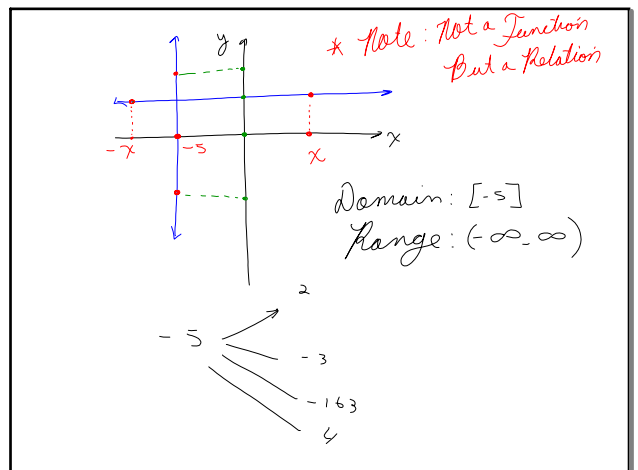 y
* Note: Not a Function
But a Relation
-x
-5
x
x
Domain: [-5]
Range: (-∞, ∞)
2
-5
-3
-163
4